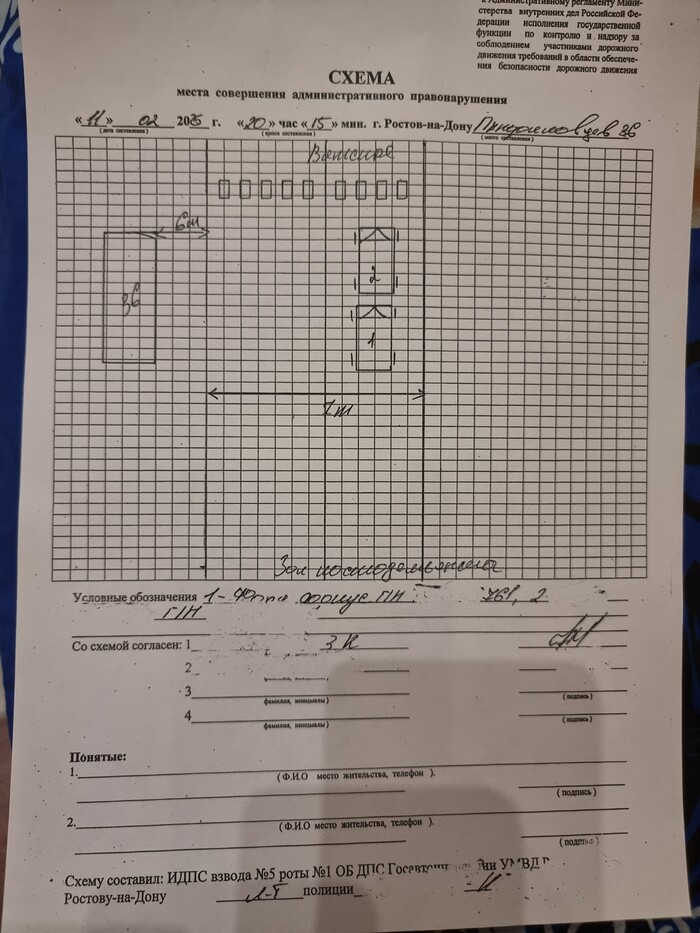 к Административному регламенту Мини-
стерства внутренних дел Российской Фе-
дерации исполнения государственной
функции по контролю и надзору за
соблюдением участниками дорожного
движения требований в области обеспече-
ния безопасности дорожного движения
СХЕМА
места совершения административного правонарушения
« 11 » 02 2025 г. « 20 » час « 15 » мин. г. Ростов-на-Дону 36
(дата составления) (время составления) (место составления)
6m
36
2
1
7m
Условные обозначения 1 - Форд фокус ГРН 761, 2
ГРН
Со схемой согласен: 1
2
3
фамилия, инициалы) (подпись)
4
фамилия, инициалы) (подпись)
Понятые:
1.
( Ф.И.О место жительства, телефон ).
( подпись )
2.
(Ф.И.О место жительства, телефон ).
( подпись)
Схему составил: ИДПС взвода №5 роты №1 ОБ ДПС УМВД
Ростову-на-Дону л-т полиции